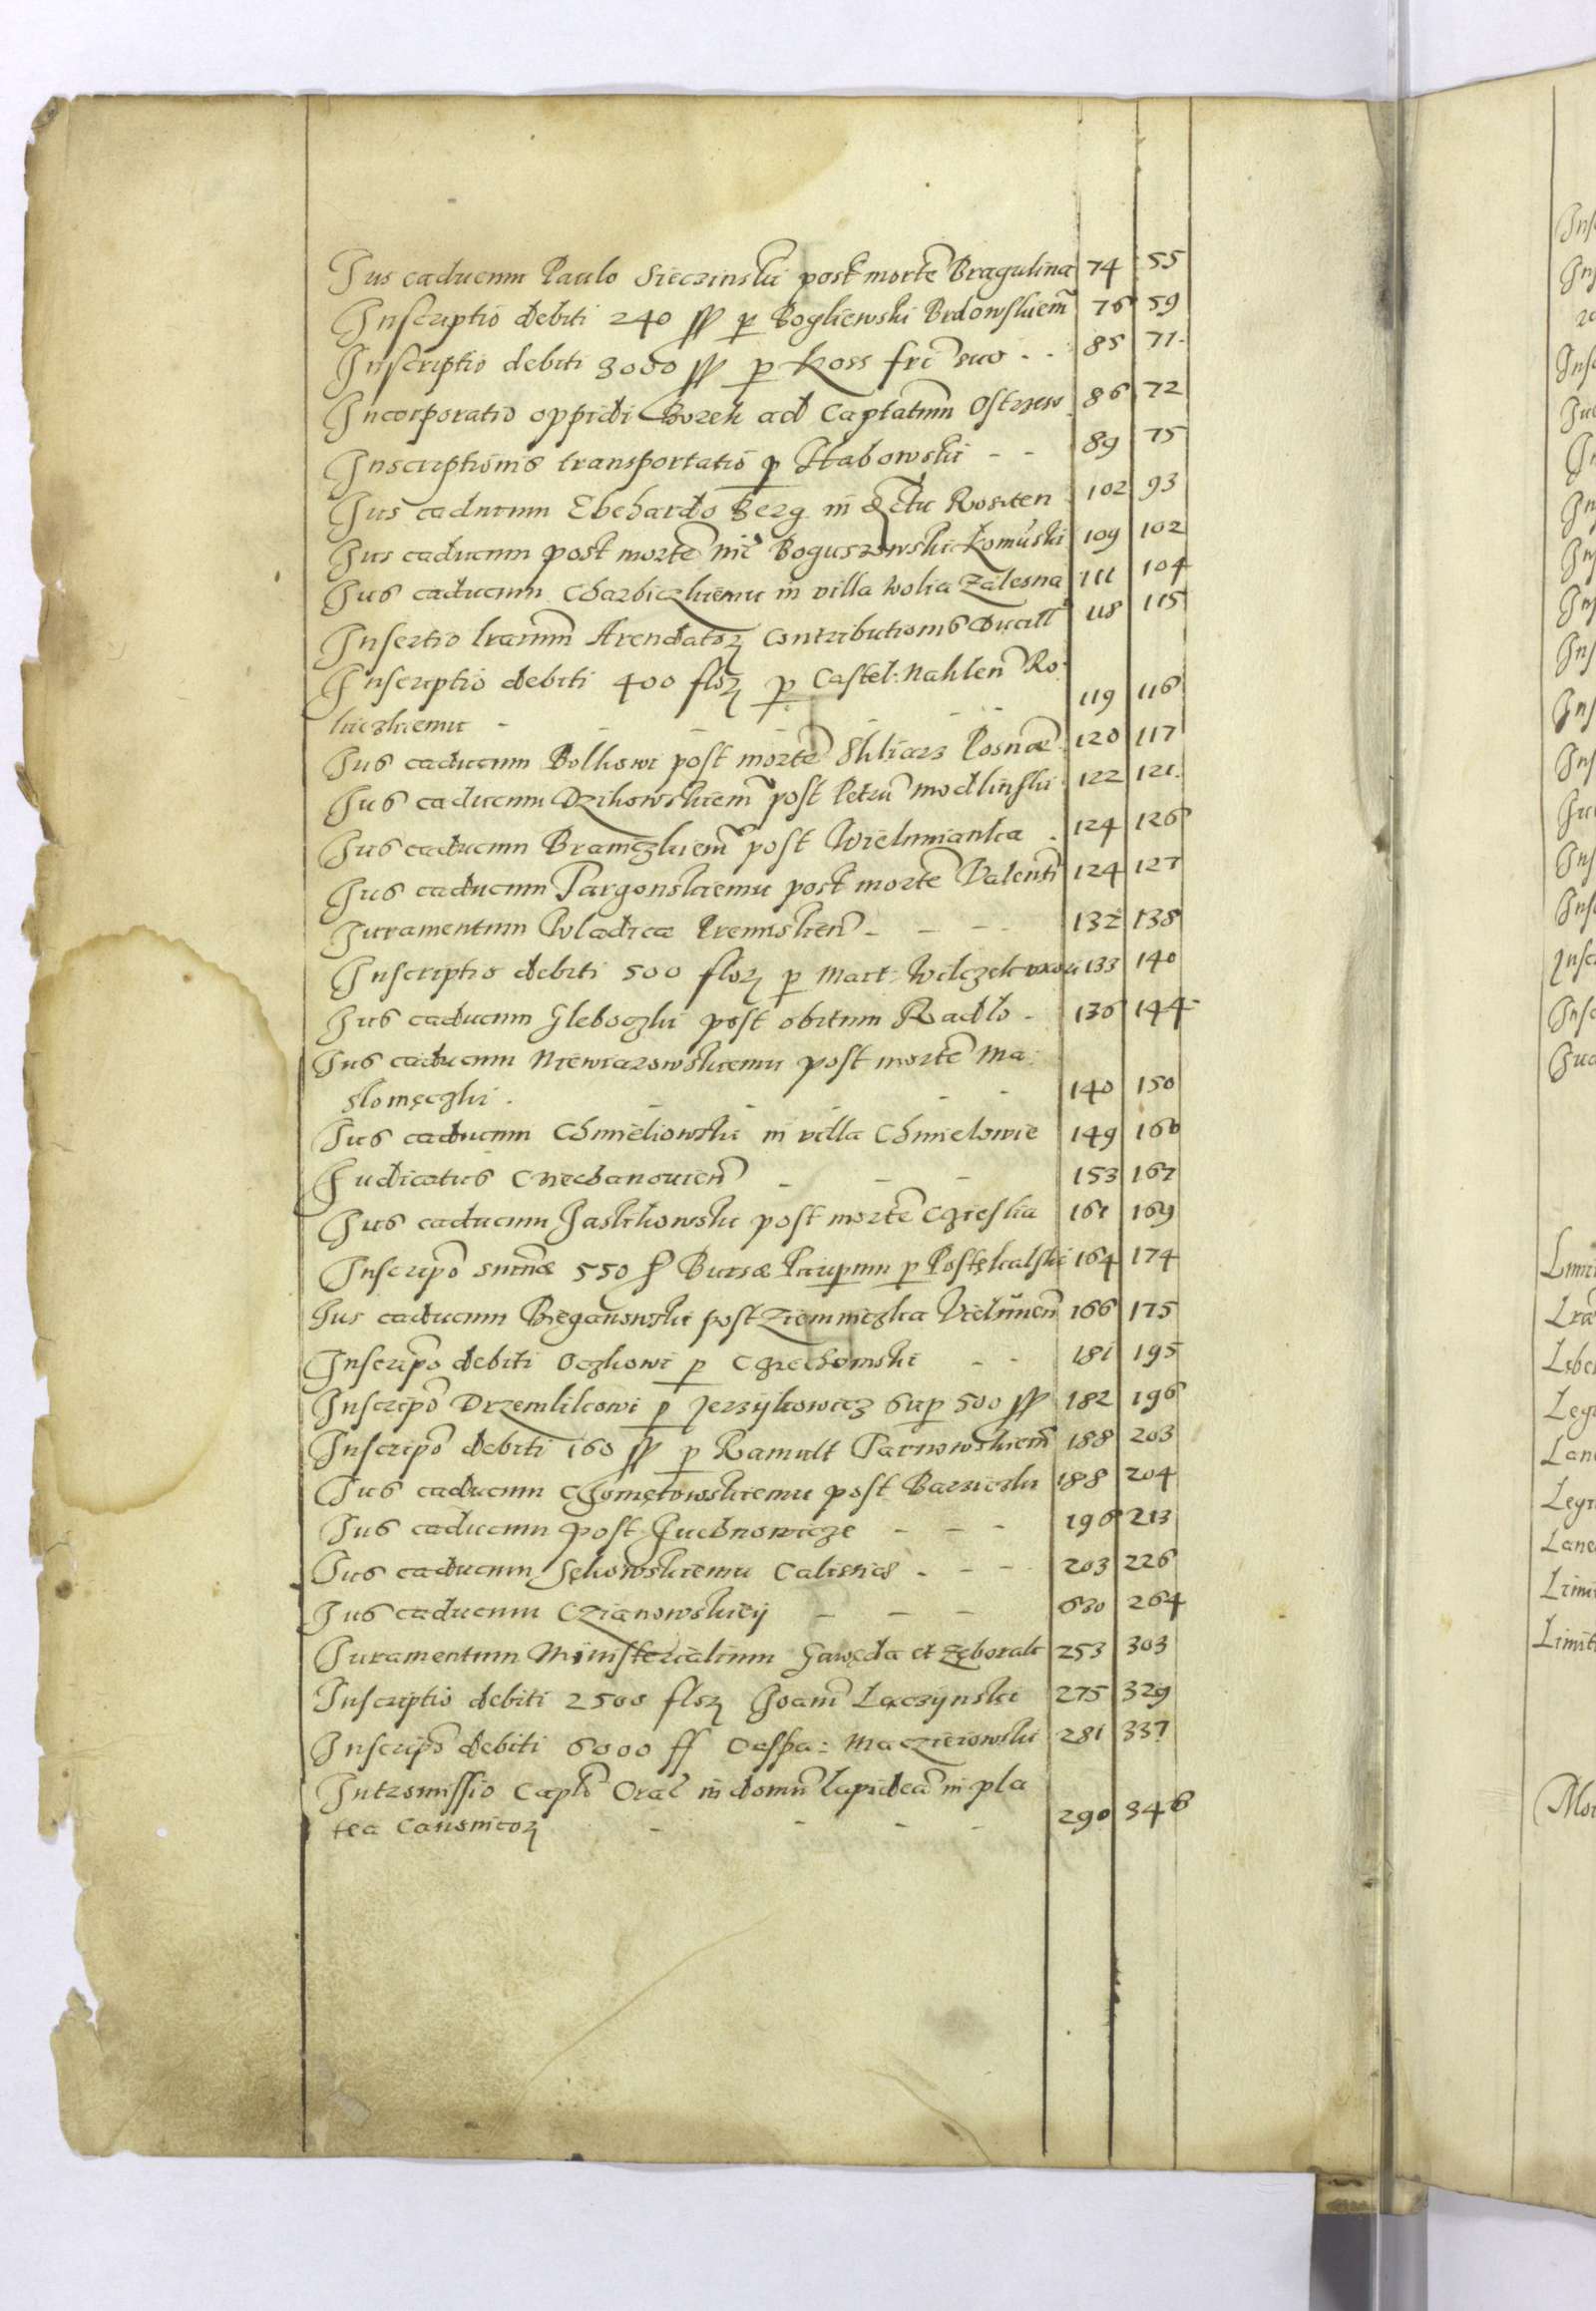 Jus caducum Paulo Sieczinski post mortē Bragulina 74 55
Inscriptio debiti 240 fl p Bogliewski Brdowskiem̃ 76 59
Inscriptio debiti 3000 fl p Koss fri suo - - 85 71
Incorporatio oppidi Borek ad Captatum Ostrzew 86 72
Inscriptionis transportatio p Stabowski - - 89 75
Jus caducum Ebehardo Berg in Rositen 102 93
Jus caducum post mortē Boguszowski Komuski 109 102
Jus caducum Charbiczkiemu in villa Wolia Zalesna 111 104
Insertio lrarum Arendatoꝝ Contributionis Ducall 118 115
Inscriptio debiti 400 floꝝ p Castel: Naklen̄ Ro:
liczkiemu - - - - - - 119 116
Jus caducum Bolkowi post mortē Skliarz Posnæ 120 117
Jus caducum Dzikowskiem̃ post Petrū Modlinski 122 121
Jus caducum Bramczkiem̃ post Wielunianka - 124 126
Jus caducum Targonskiemu post mortē Valenti 124 127
Juramentum Wladicæ Premislien̄ - - - 132 138
Inscriptio debiti 500 floꝝ p Mart: Wilczek uxori 133 140
Jus caducum Gleboczki post obitum Radlo - 136 144
Jus caducum Niewiarowskiemu post mortē Ma:
slomęczki - - - - - 140 150
Jus caducum Chmieliowski in villa Chmielowie 149 160
Judicatus Ciechanovien̄ - - - 153 167
Jus caducum Jaskikowski post mortē Czieslia 161 169
Inscripõ sum̄æ 550 f Bursæ Paupum p Postękalski 164 174
Jus caducum Bieganowski post Ziemniczka Vielunen̄ 166 175
Inscripõ debiti Oczkowi p Czechowski - - 181 195
Inscripõ Drzemlikowi p Jerzykowicz sup 500 fl 182 196
Inscripõ debiti 160 fl p Ramult Tarnowskiem̃ 188 203
Jus caducum Chometowskiemu post Barziczki 188 204
Jus caducum post Juchnowicze - - - 196 213
Jus caducum Sękowskiemu Calisria - - - 203 226
Jus caducum Czianowskiey - - - 630 264
Juramentum Ministerialium Gawęda et Zęborak 253 303
Inscriptio debiti 2500 floꝝ Joan̄i Laczynski 275 329
Inscripõ debiti 6000 ff Caspa: Maczieiowski 281 337
Intromissio Capli Crac in domū lapideā in pla
tea Canonicoꝝ - - - - 290 346